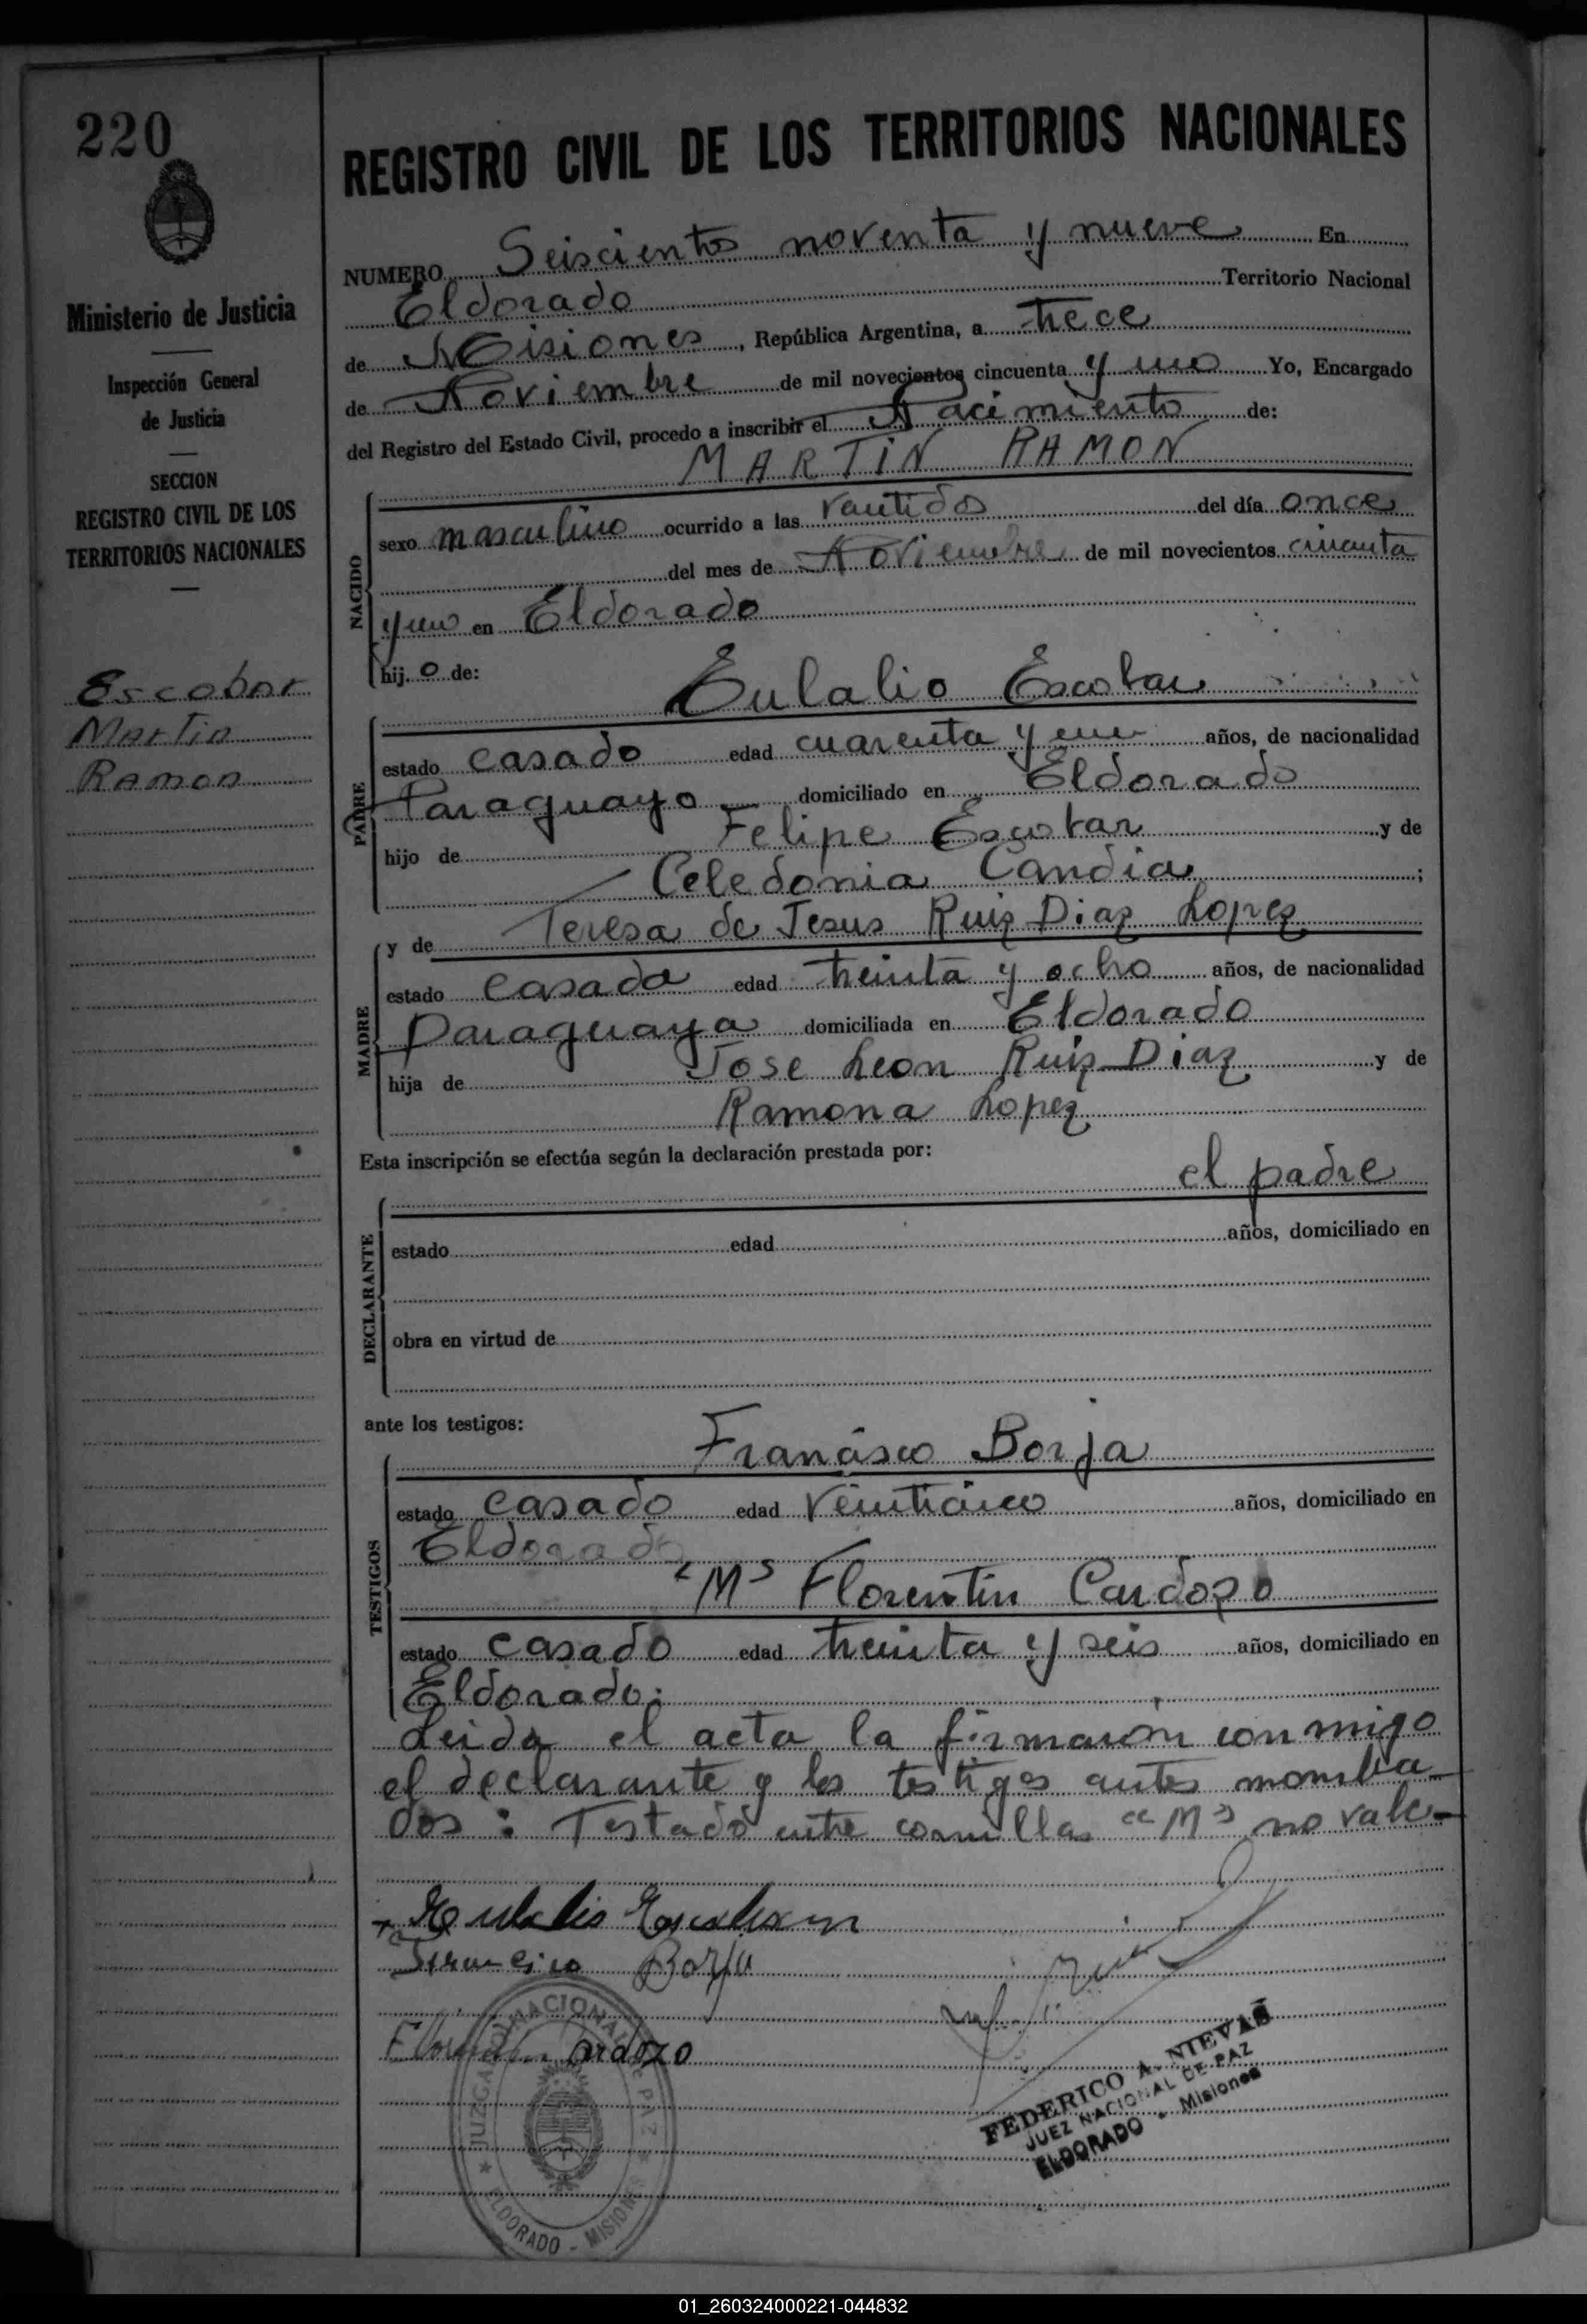 220
Ministerio de Justicia
Inspección General
de Justicia
SECCION
REGISTRO CIVIL DE LOS
TERRITORIOS NACIONALES
Escobar
Martin
Ramon
REGISTRO CIVIL DE LOS TERRITORIOS NACIONALES
NUMERO Seiscientos noventa y nueve En
Eldorado Territorio Nacional
de Misiones, República Argentina, a trece
de Noviembre de mil novecientos cincuenta y uno Yo, Encargado
del Registro del Estado Civil, procedo a inscribir el Nacimiento de:
MARTIN RAMON
NACIDO
sexo masculino ocurrido a las ventidos del día once
del mes de Noviembre de mil novecientos cincuenta
y uno en Eldorado
hijo de:
Eulalio Escobar
PADRE
estado casado edad cuarenta y un años, de nacionalidad
Paraguayo domiciliado en Eldorado
hijo de Felipe Escobar y de
Celedonia Candia;
y de Teresa de Jesus Ruiz Diaz Lopez
MADRE
estado casada edad treinta y ocho años, de nacionalidad
Paraguaya domiciliada en Eldorado
hija de Jose Leon Ruiz Diaz y de
Ramona Lopez
Esta inscripción se efectúa según la declaración prestada por:
el padre
DECLARANTE
estado edad años, domiciliado en
obra en virtud de
ante los testigos:
Francisco Borja
TESTIGOS
estado casado edad veinticinco años, domiciliado en
Eldorado
"M" Florentin Cardozo
estado casado edad treinta y seis años, domiciliado en
Eldorado.
Leida el acta la firmaron conmigo
el declarante y los testigos antes nombra-
dos: Testado entre comillas "M" no vale-
Eulalio Escobar
Francisco Borja
Florentin Cardozo
JUZGADO NACIONAL DE PAZ
ELDORADO - MISIONES
FEDERICO A. NIEVAS
JUEZ NACIONAL DE PAZ
ELDORADO - Misiones
01_260324000221-044832